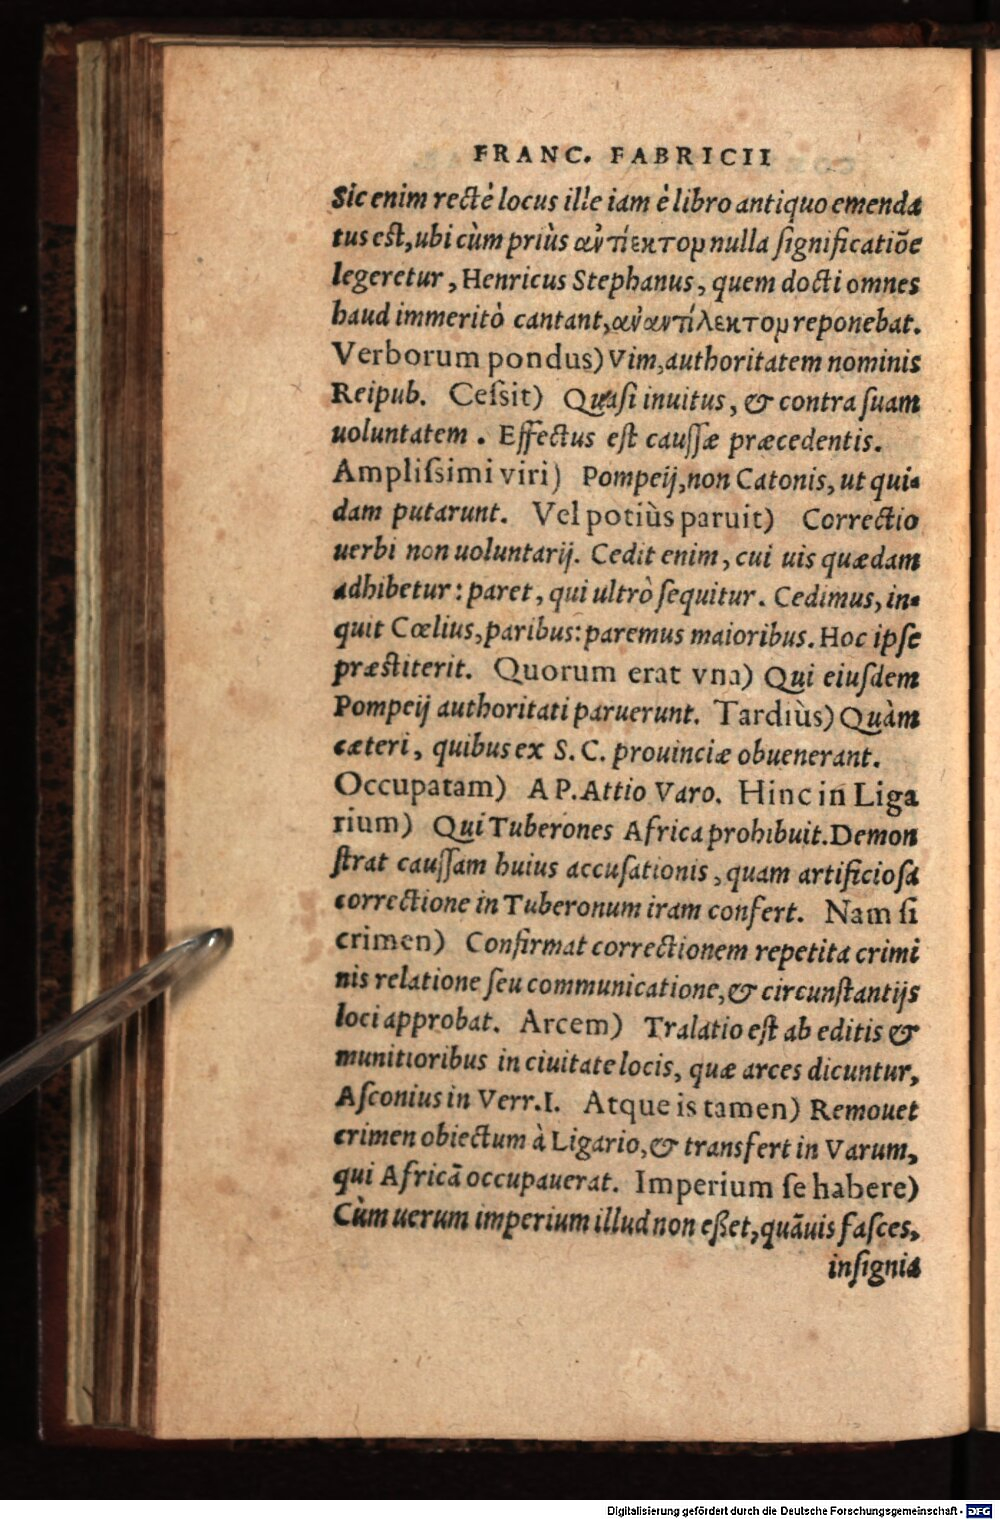 FRANC. FABRICII
Sic enim rectè locus ille iam è libro antiquo emenda
tus est, ubi cùm priùs ἀντίεκτορ nulla significatiōe
legeretur, Henricus Stephanus, quem docti omnes
haud immeritò cantant, ἀναντίλεκτορ reponebat.
Verborum pondus) Vim, authoritatem nominis
Reipub. Cessit) Quasi inuitus, & contra suam
uoluntatem. Effectus est caussæ præcedentis.
Amplissimi viri) Pompeij, non Catonis, ut qui-
dam putarunt. Vel potiùs paruit) Correctio
uerbi non uoluntarij. Cedit enim, cui uis quædam
adhibetur: paret, qui ultrò sequitur. Cedimus, in-
quit Cœlius, paribus: paremus maioribus. Hoc ipse
præstiterit. Quorum erat vna) Qui eiusdem
Pompeij authoritati paruerunt. Tardiùs) Quàm
cæteri, quibus ex S. C. prouinciæ obuenerant.
Occupatam) A P. Attio Varo. Hinc in Liga
rium) Qui Tuberones Africa prohibuit. Demon
strat caussam huius accusationis, quam artificiosa
correctione in Tuberonum iram confert. Nam si
crimen) Confirmat correctionem repetita crimi
nis relatione seu communicatione, & circunstantijs
loci approbat. Arcem) Tralatio est ab editis &
munitioribus in ciuitate locis, quæ arces dicuntur,
Asconius in Verr. I. Atque is tamen) Remouet
crimen obiectum à Ligario, & transfert in Varum,
qui Africā occupauerat. Imperium se habere)
Cùm uerum imperium illud non eßet, quāuis fasces,
insignia
Digitalisierung gefördert durch die Deutsche Forschungsgemeinschaft - DFG